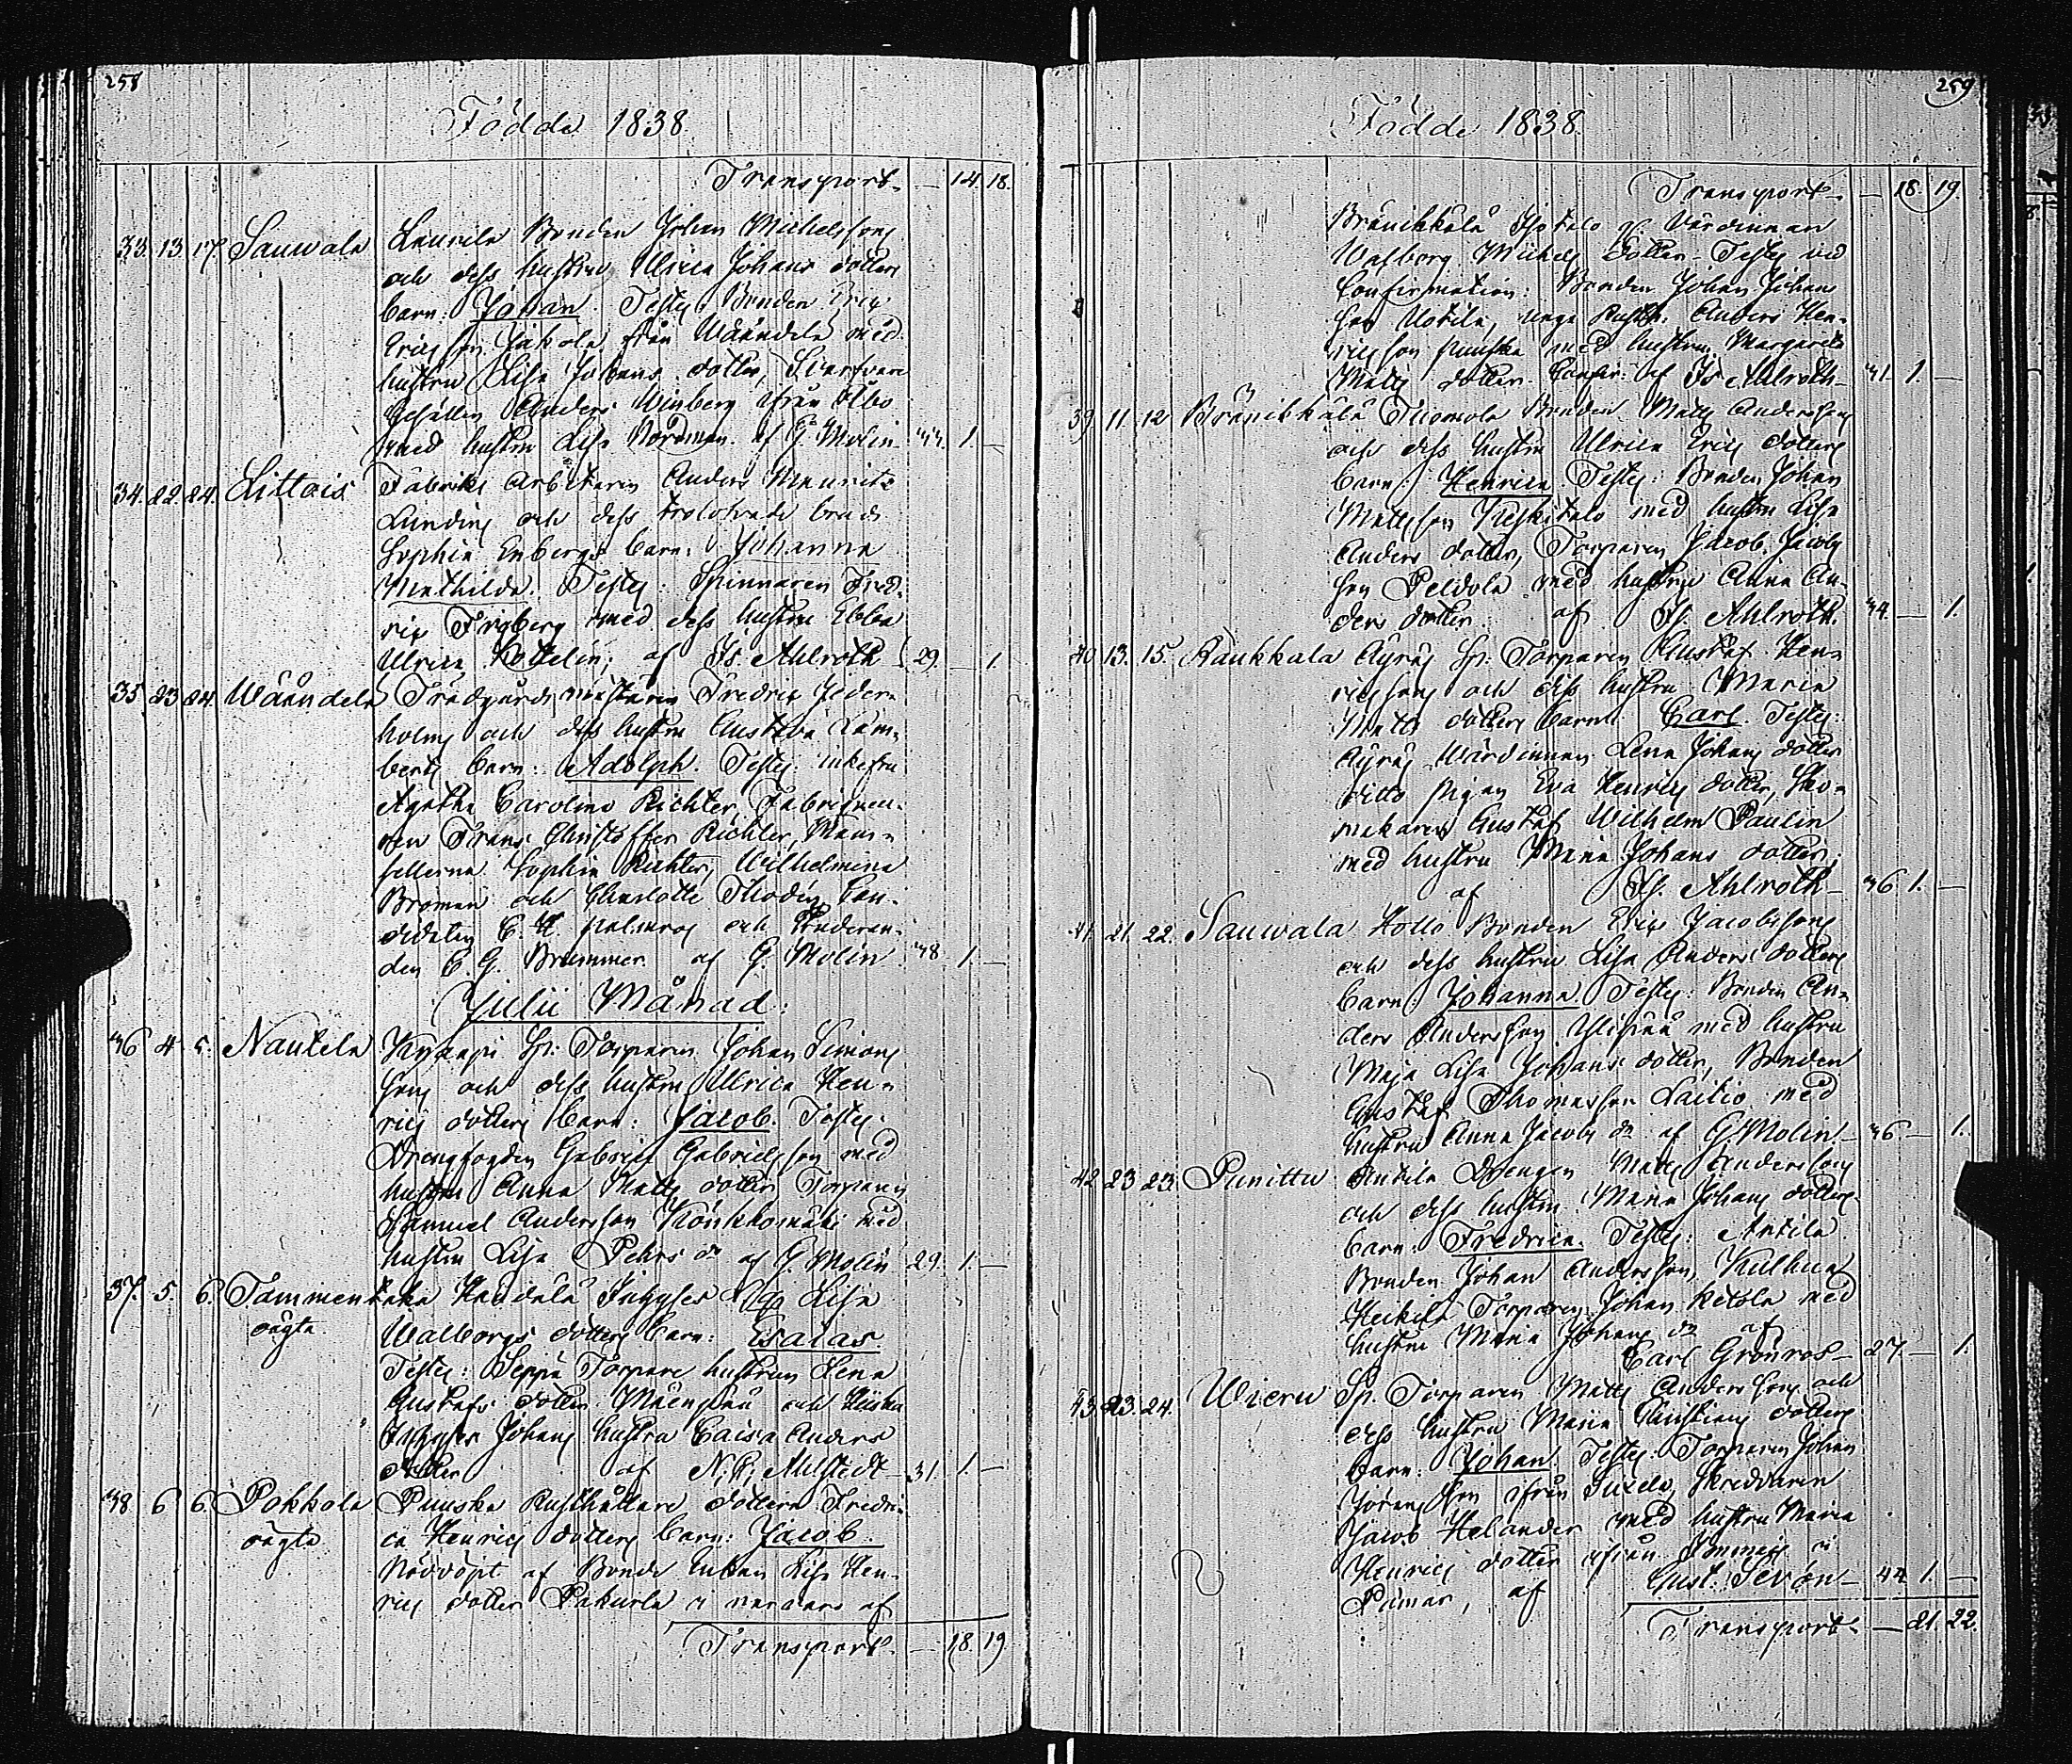 258
Födde 1838.
Transport — 14. 18.
33. 13. 17. Sauwala Laurila Bonden Johan Michelsons
och dess hustru Ulrica Johans dotters
barn: Johan. Testes: Bonden Eric
Ericsson Jakola från Wääntelä med
hustru Lisa Johans dotter, Svarfvare
Gesällen Anders Winberg ifrån Åbo
med hustru Lisa Nordman. af G. Molin 44. 1. —
34. 22. 24. Littois Fabriks Arbetaren Anders Maurits
Lundins och dess trolofvade brud
Sophia Enbergs barn: Johanna
Mathilda. Testes: Spinnaren Fred-
ric Friberg med dess hustru Ebba
Ulrica af Is. Ahlroth 29. — 1.
35. 23. 24. Wääntelä Trädgårds mästaren Fredric Ceder-
holms och dess hustru Gustava Lam-
berts barn: Adolph. Testes: enkefru
Agatha Carolina Richter, Fabriqueu-
ren Frans Christoffer Richter, Mam-
sellerna Sophia Richter, Wilhelmina
Broman och Charlotta Thodén, Can-
didaten C. H. och Studeran-
den C. G. Brummer. af G. Molin 38. 1. —
Julii Månad.
36 4. 5. Nautela Sp: Torparen Johan Simons
sons och dess hustru Ulrica Hen-
rics dotters barn: Jacob. Testes:
Drengfogden Gabriel Gabrielsson med
hustru Anna Matts dotter, Torparen
Samuel Andersson Könkkomäki med
hustru Lisa Pehrs dr af G. Molin 29. 1. —
37. 5. 6. Tammentaka Inhyses Lisa
oägta Walborgs dotters barn: Esaias.
Testes: Seppä Torpare hustrun Lena
Gustafs dotter Mäenpää och
Inhyses Johans hustru Caisa Anders
dotter af N. C. Ahlstedt 31. 1. —
38 6 6. Pokkola Puuska Rusthållare dottern Fredri-
oägta ca Henrics dotters barn: Jacob.
Nöddöpt af Bonde Enkan Lisa Hen-
rics dotter Pakurla i närvaro af
Transport — 18. 19.
259
Födde 1838.
Transport — 18. 19.
Bränikkälä Isotalo Värdinnan
Walborg Michels dotter. Testes vid
Confirmation: Bonden Johan Johans
son Uotila, unge Rusth: Anders Hen-
ricsson Puuska med hustru Margareta
Matts dotter. Confir: af Is Ahlroth 31. 1. —
39. 11. 12 Bränikkälä Tuomola Bonden Matts Anderssons
och dess hustru Ulrica Erics dotters
barn: Henrica. Testes: Bonden Johan
Mattsson Keskitalo med hustru Lisa
Anders dotter, Torparen Jacob Jacobs
son Peldola med hustru Anna An-
ders dotter. af Is. Ahlroth. 34. — 1.
40 13. 15. Raukkala Äyräs Sp: Torparen Gustaf Hen-
ricssons och dess hustru Maria
Matts dotters barn: Carl. Testes:
Äyräs Wärdinnan Lena Johans dotter
ditto Pigan Eva Henrics dotter, Sko-
makaren Gustaf Wilhelm Paulin
med hustru Maria Johans dotter;
af Is. Ahlroth 36 1. —
41. 21. 22. Sauwala Hollo Bonden Eric Jacobssons
och dess hustru Lisa Anders dotters
barn: Johanna. Testes: Bonden An-
ders Andersson Ylipää med hustru
Maja Lisa Johans dotter, Bonden
Gustaf Thomasson Laitio med
hustru Anna Jacobs dr af G. Molin 36 — 1.
42 23 23. Punittu Antila Drengen Matts Anderssons
och dess hustru Maria Johans dotters
barn: Fredrica. Testes: Antila
Bonden Johan Andersson, Kulhua
Heikilä Torparen Johan Ketola med
hustru Maria Johans dr af
Carl Grönros 27. — 1.
43. 23. 24. Wieru Sp. Torparen Matts Anderssons och
dess hustru Maria Christians dotters
barn: Johan. Testes: Torparen Johan
Jöransson ifrån Tuxela, Skreddaren
Jacob Helander med hustru Maria
Henrics dotter ifrån i
Pämar, af Gust. Serón 44 1. —
Transport — 21. 22.